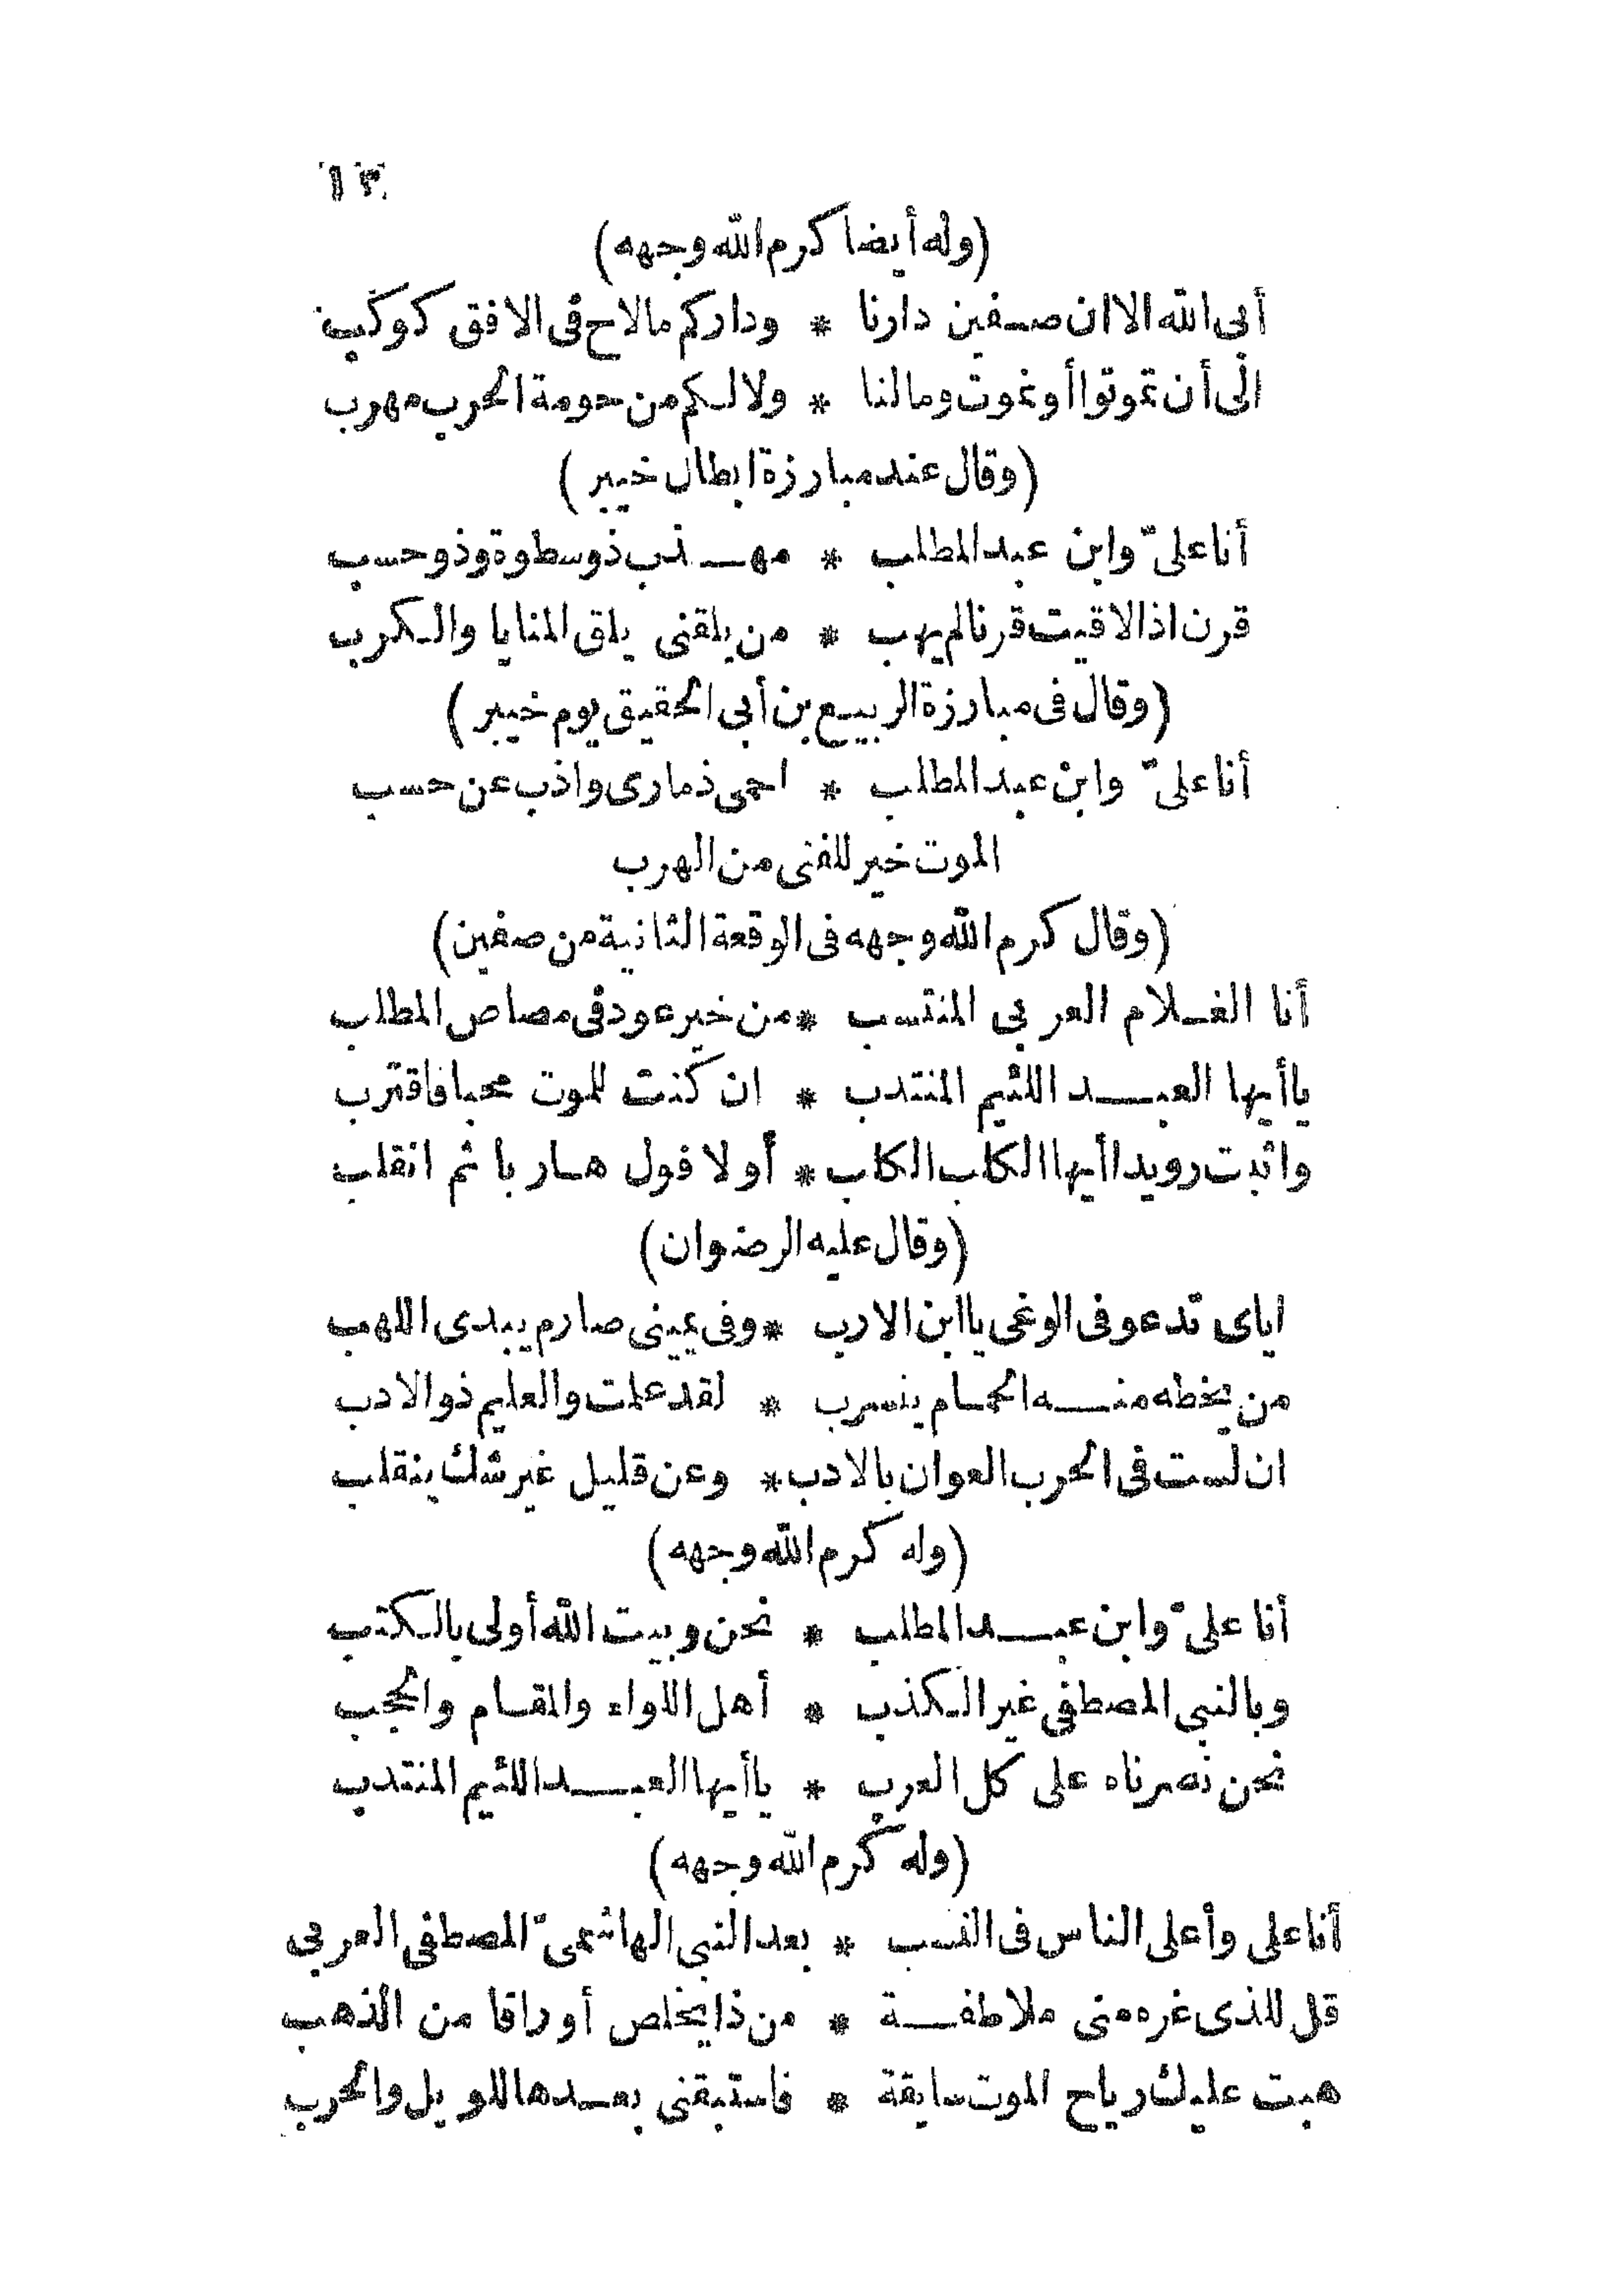 ١٣
(وله أيضا كرم الله وجهه)
أبى الله الا ان صفين دارنا * وداركم مالاح فى الافق كوكب
الى أن تموتوا أو نموت ومالنا * ولا لكم من حومة الحرب مهرب
(وقال عند مبارزة ابطال خيبر)
أنا علىّ وابن عبد المطلب * مهذب ذو سطوة وذو حسب
قرن اذا لاقيت قرنا لم يهب * من يلقنى يلق المنايا والكرب
(وقال فى مبارزة الربيع بن أبى الحقيق يوم خيبر)
أنا علىّ وابن عبد المطلب * احمى ذمارى واذب عن حسب
الموت خير للفتى من الهرب
(وقال كرم الله وجهه فى الوقعة الثانية من صفين)
أنا الغلام العربى المنتسب * من خير عود فى مصاص المطلب
يا أيها العبد اللئيم المنتدب * ان كنت للموت محبا فاقترب
واثبت رويدا أيها الكلب الكلب * أولا فول هاربا ثم انقلب
(وقال عليه الرضوان)
اياى تدعو فى الوغى يا ابن الارب * وفى يمينى صارم يبدى اللهب
من يخطه منه الحمام ينسرب * لقد علمت والعليم ذو الادب
ان لست فى الحرب العوان بالادب * وعن قليل غير شك ينقلب
(وله كرم الله وجهه)
أنا علىّ وابن عبد المطلب * نحن وبيت الله أولى بالكتب
وبالنبى المصطفى غير الكذب * أهل اللواء والمقام والحجب
نحن نصرناه على كل العرب * يا أيها العبد اللئيم المنتدب
(وله كرم الله وجهه)
أنا على وأعلى الناس فى النسب * بعد النبى الهاشمىّ المصطفى العربى
قل للذى غره منى ملاطفة * من ذا يخلص أوراقا من الذهب
هبت عليك رياح الموت سابقة * فاستبقنى بعدها للويل والحرب